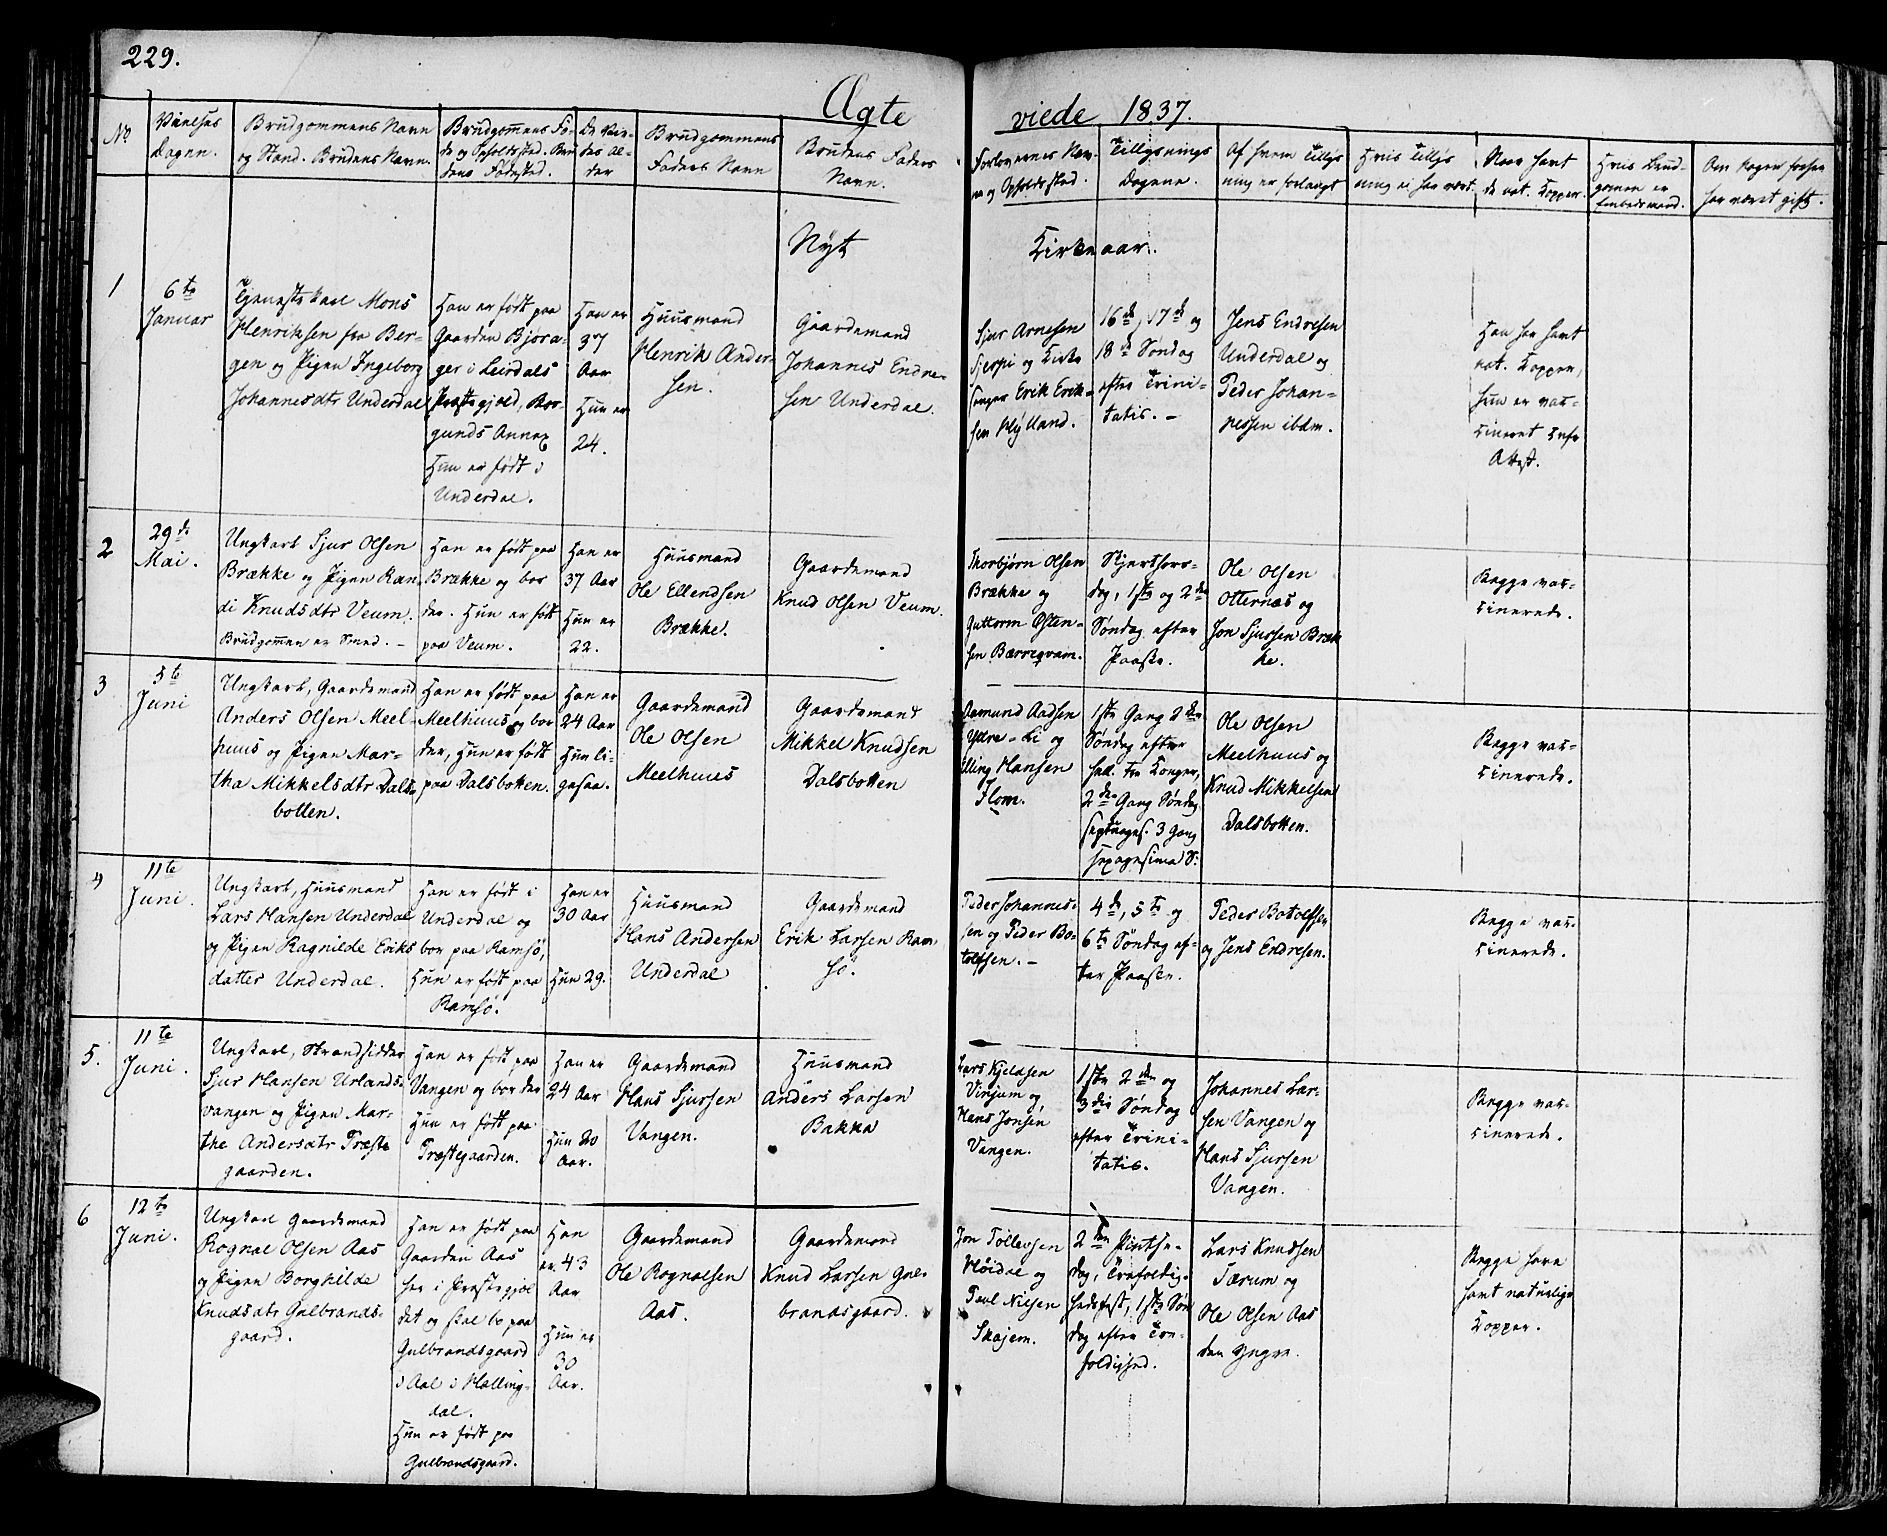 229.
Ægte viede 1837.
No
Vielses
dagen.
Brudgommens Navn
og Stand. Brudens Navn.
Brudgommens Fø-
de og Opholdssted. Bru
dens Fødested.
De Vie-
des Al-
der
Brudgommens
Faders Navn
Brudens Faders
Navn.
Forlovernes Nav-
ne og Opholdssted.
Tillysnings
dagene.
Af hvem Tillys
ning er forlangt
Hvis Tillys
ning ei har været.
Naar havt
de nat. Kopper.
Hvis Brud-
gommen er
Embedsmand.
Om Nogen forhen
har været gift.
Nyt Kirkeaar.
1
6te
Januar
Tjenestekarl Mons
Henriksen fra Ber-
gen og Pigen Ingeborg
Johannesdtr Underdal
Han er født paa
Gaarden Bjøra-
ger i Leirdals
Præstegjæld, Bor-
gunds Annex
Hun er født i
Underdal.
Han er
37
Aar
Hun er
24.
Huusmand
Henrik Ander-
sen.
Gaardemand
Johannes Endre-
sen Underdal.
Sjur Arnesen
og Kirke
sanger Erik Erik-
sen Nylland.
16de, 17de og
18de Søndag
efter Trini-
tatis. –
Jens Endresen
Underdal og
Peder Johan-
nessen ibdm.
Han har havt
nat. Kopper,
hun er vac-
cineret
Attest.
2
29de
Mai.
Ungkarl Sjur Olsen
Brække og Pigen Ran
di Knudsdtr Veum.
Brudgommen er Smed. –
Han er født paa
Brække og bor
der. Hun er født
paa Veum.
Han er
37 Aar
Hun er
22.
Huusmand
Ole Ellendsen
Brække.
Gaardemand
Knud Olsen Veum.
Thorbjørn Olsen
Brække og
Guttorm Østen-
sen Bærreqvam.
Skjærthors-
dag, 1ste og 2den
Søndag efter
Paaske.
Ole Olsen
Otternæs og
Jon Sjursen Bræk
ke.
Begge vac-
cinerede.
3
5te
Juni
Ungkarl, Gaardemand
Anders Olsen Meel-
huus og Pigen Mar-
tha Mikkelsdtr Dals-
botten.
Han er født paa
Meelhuus og bor
der, Hun er født
paa Dalsbotten.
Han er
24 Aar
Hun li-
gesaa.
Gaardemand
Ole Olsen
Meelhuus
Gaardemand
Mikkel Knudsen
Dalsbotten
Aamund Aadsen
Ydre-Li og
Elling Hansen
Flom.
1ste Gang 2den
Søndag efter
hell. tre Konger,
2den Gang Søndag
septuages. 3 Gang
sexagesima S:
Ole Olsen
Meelhuus og
Knud Mikkelsen
Dalsbotten.
Begge vac-
cinerede.
4
11te
Juni.
Ungkarl, Huusmand
Lars Hansen Underdal
og Pigen Ragnilde Eriks
datter Underdal.
Han er født i
Underdal og
bor paa Ramsø,
Hun er født paa
Ramsø.
Han er
30 Aar
Hun 29.
Huusmand
Hans Andersen
Underdal
Gaardemand
Erik Larsen Ram-
sø.
Peder Johannes-
sen og Peder Bo-
tolfsen. –
4de, 5te og
6te Søndag ef-
ter Paaske.
Peder Botolfsen
og Jens Endresen.
Begge vac-
cinerede.
5.
11te
Juni.
Ungkarl, Strandsidder
Sjur Hansen Urlands-
vangen og Pigen Mar-
the Andersdtr Præste
gaarden.
Han er født paa
Vangen og bor der
Hun er født paa
Præstegaarden.
Han er
24 Aar
Hun 20
Aar.
Gaardemand
Hans Sjursen
Vangen.
Huusmand
Anders Larsen
Bakka
Lars Kjeldsen
Vinjum og
Hans Jonsen
Vangen.
1ste 2den og
3die Søndag
efter Trini-
tatis.
Johannes Lar-
sen Vangen og
Hans Sjursen
Vangen.
Begge vac-
cinerede.
6
12te
Juni.
Ungkarl Gaardemand
Rognal Olsen Aas
og Pigen Borghilde
Knudsdtr Gulbrands-
gaard.
Han er født paa
Gaarden Aas
her i Præstegjæl
det og skal bo paa
Gulbrandsgaard
i Aal i Halling-
dal.
Hun er født paa
Gulbrandsgaard.
Han
er 43
Aar
Hun er
30
Aar.
Gaardemand
Ole Rognalsen
Aas.
Gaardemand
Knud Larsen Gul-
brandsgaard.
Jon Tollevsen
Høidal og
Poul Nilsen
Skajem.
2den Pintse-
dag, Trefoldig-
hedsfest, 1ste Søn
dag efter Tre-
foldighed.
Lars Knudsen
Tærum og
Ole Olsen Aas
den yngre.
Begge have
havt naturlige
Kopper.